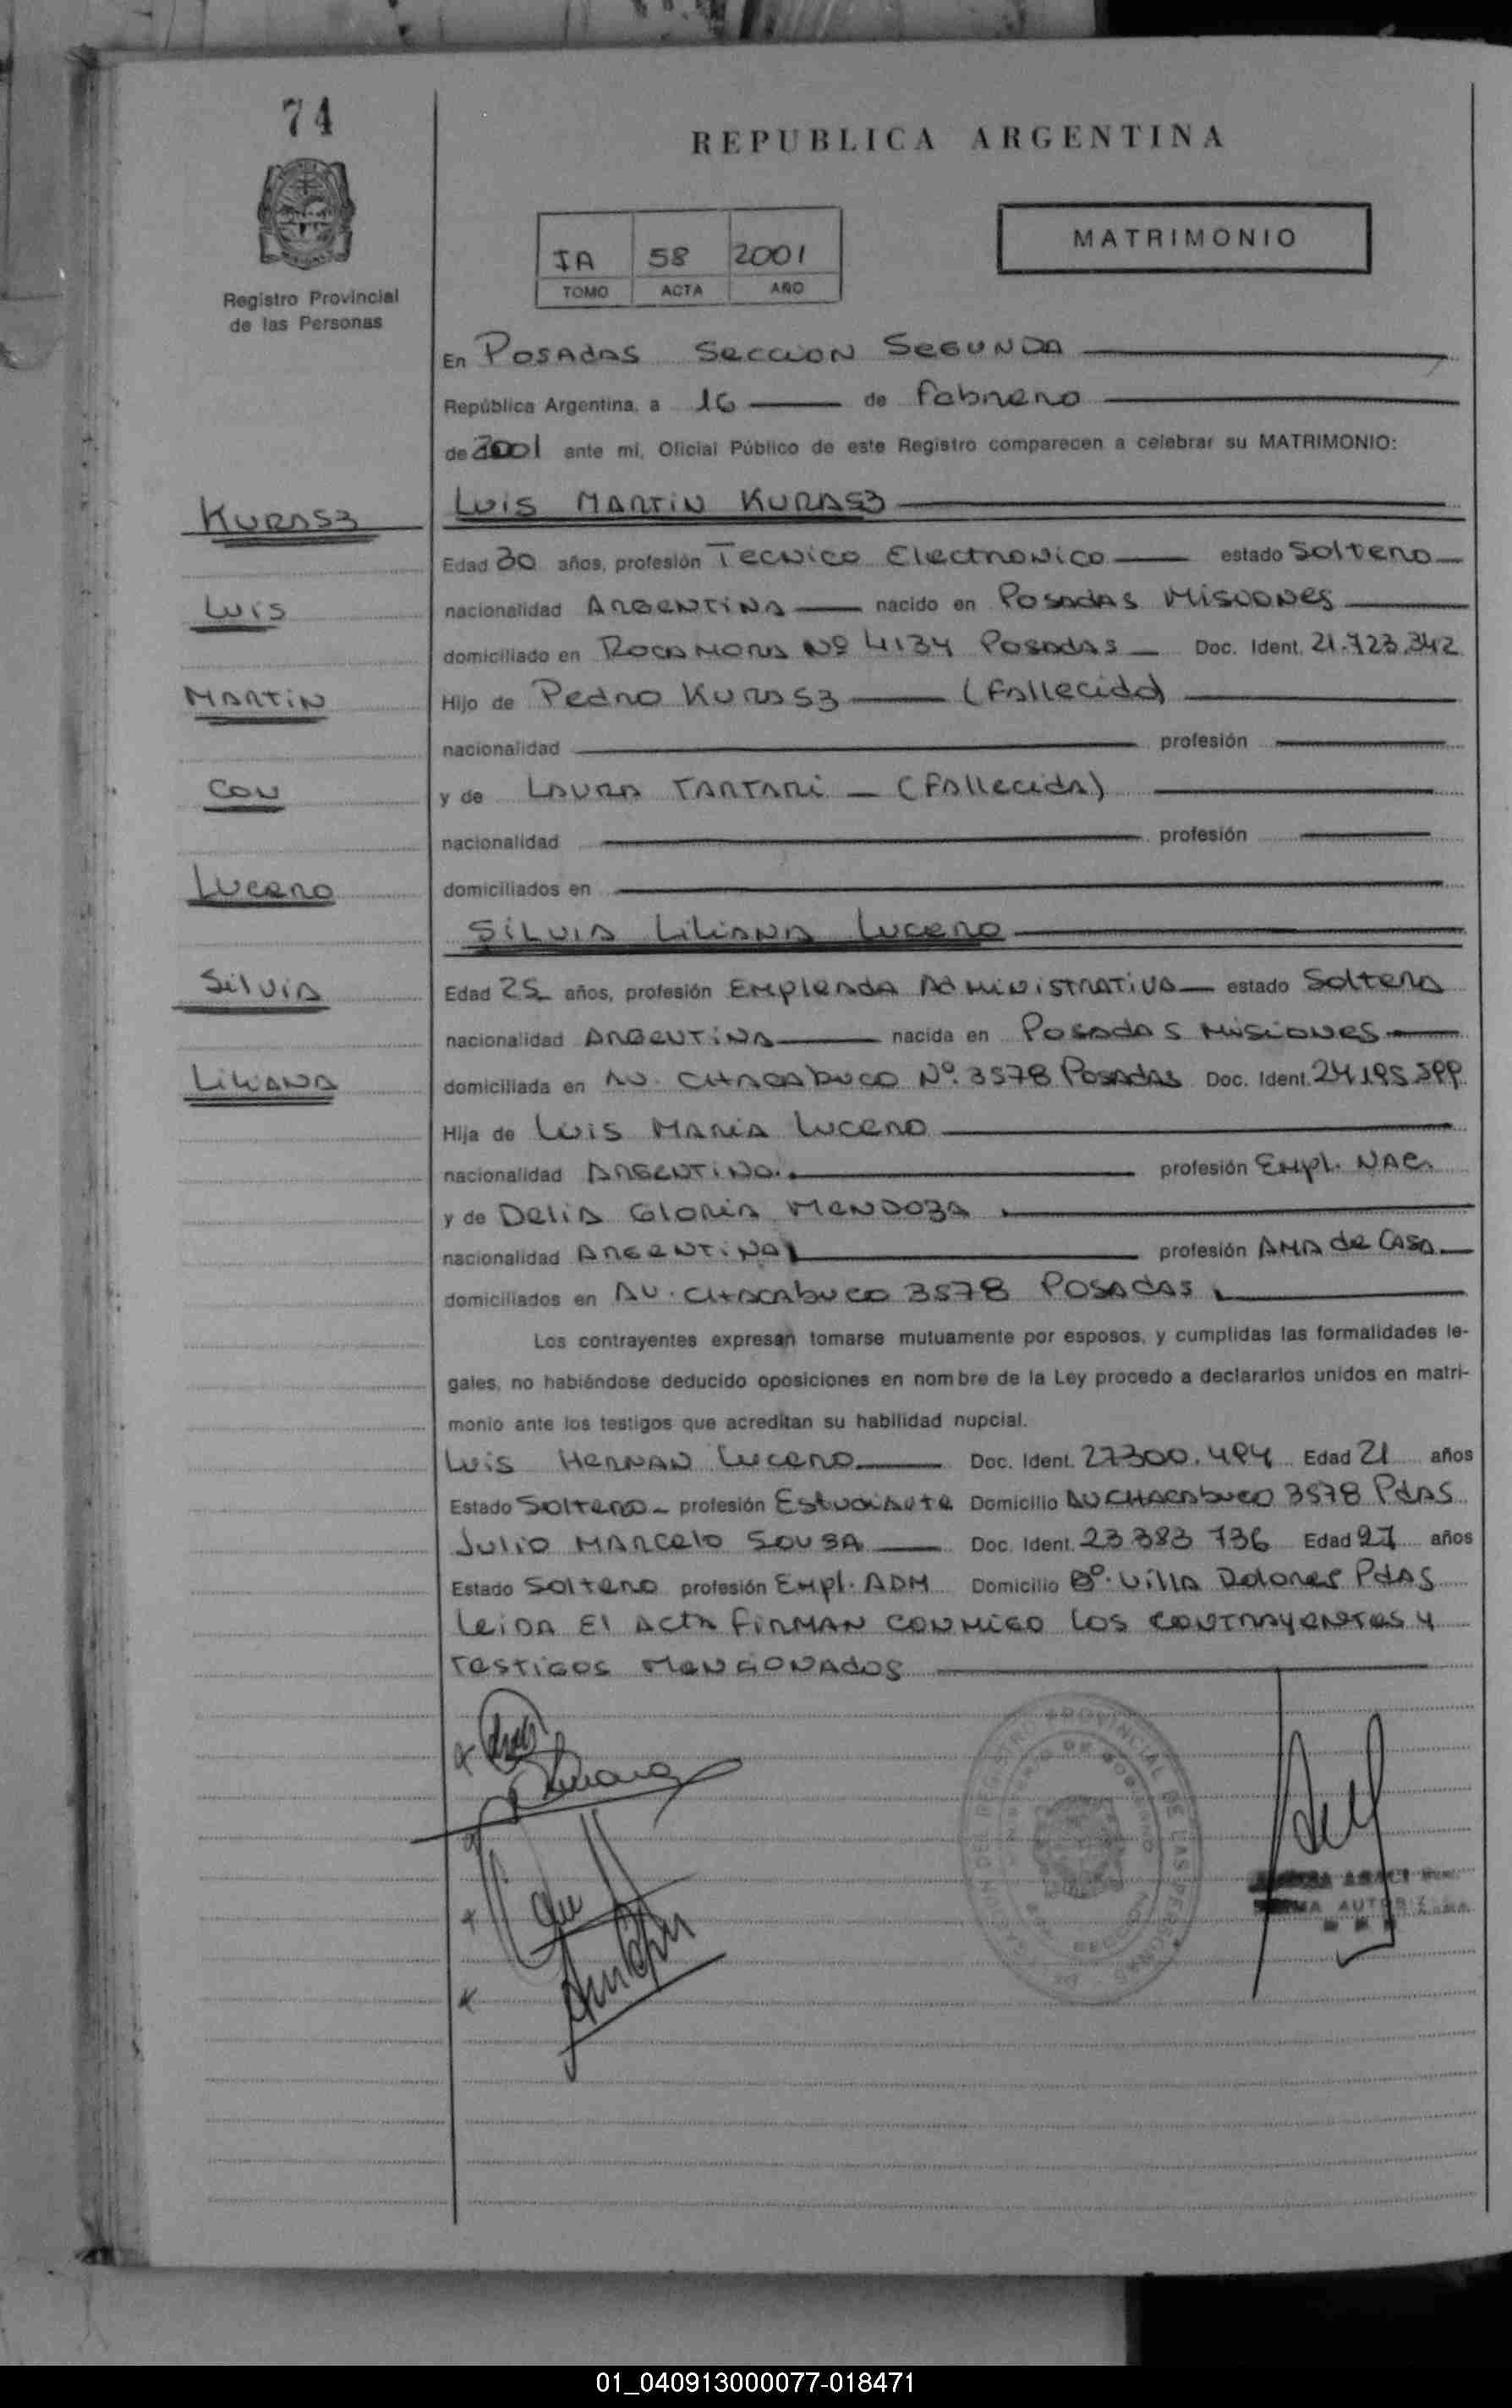 74
REPUBLICA ARGENTINA
MATRIMONIO
IA 58 2001
TOMO ACTA AÑO
Registro Provincial
de las Personas
En POSADAS SECCION SEGUNDA
República Argentina, a 16 de Febrero
de 2001 ante mi, Oficial Público de este Registro comparecen a celebrar su MATRIMONIO:
KURASZ
LUIS MARTIN KURASZ
Edad 30 años, profesión Tecnico Electronico estado Soltero
LUIS
nacionalidad ARGENTINA nacido en POSADAS MISIONES
domiciliado en ROCAMORA Nº 4134 POSADAS Doc. Ident. 21.723.342
MARTIN
Hijo de Pedro KURASZ (Fallecido)
nacionalidad profesión
CON
y de LAURA TARTARI (Fallecida)
nacionalidad profesión
LUCERO
domiciliados en
SILVIA LILIANA LUCERO
SILVIA
Edad 25 años, profesión EMPLEADA ADMINISTRATIVA estado Soltera
nacionalidad ARGENTINA nacida en POSADAS MISIONES
LILIANA
domiciliada en AV. CHACABUCO Nº. 3578 POSADAS Doc. Ident. 24.195.399
Hija de LUIS MARIA LUCERO
nacionalidad ARGENTINO. profesión EMPL. NAC.
y de DELIA GLORIA MENDOZA
nacionalidad ARGENTINA profesión AMA de CASA
domiciliados en AV. CHACABUCO 3578 POSADAS
Los contrayentes expresan tomarse mutuamente por esposos, y cumplidas las formalidades le-
gales, no habiéndose deducido oposiciones en nombre de la Ley procedo a declararlos unidos en matri-
monio ante los testigos que acreditan su habilidad nupcial.
LUIS HERNAN LUCERO Doc. Ident. 27300.494 Edad 21 años
Estado Soltero profesión Estudiante Domicilio AV CHACABUCO 3578 PDAS
JULIO MARCELO SOUZA Doc. Ident. 23 383 736 Edad 27 años
Estado Soltero profesión EMPL. ADM Domicilio Bº. VILLA Dolores PDAS
LEIDA EL ACTA FIRMAN CONMIGO LOS CONTRAYENTES Y
TESTIGOS MENCIONADOS
01_040913000077-018471